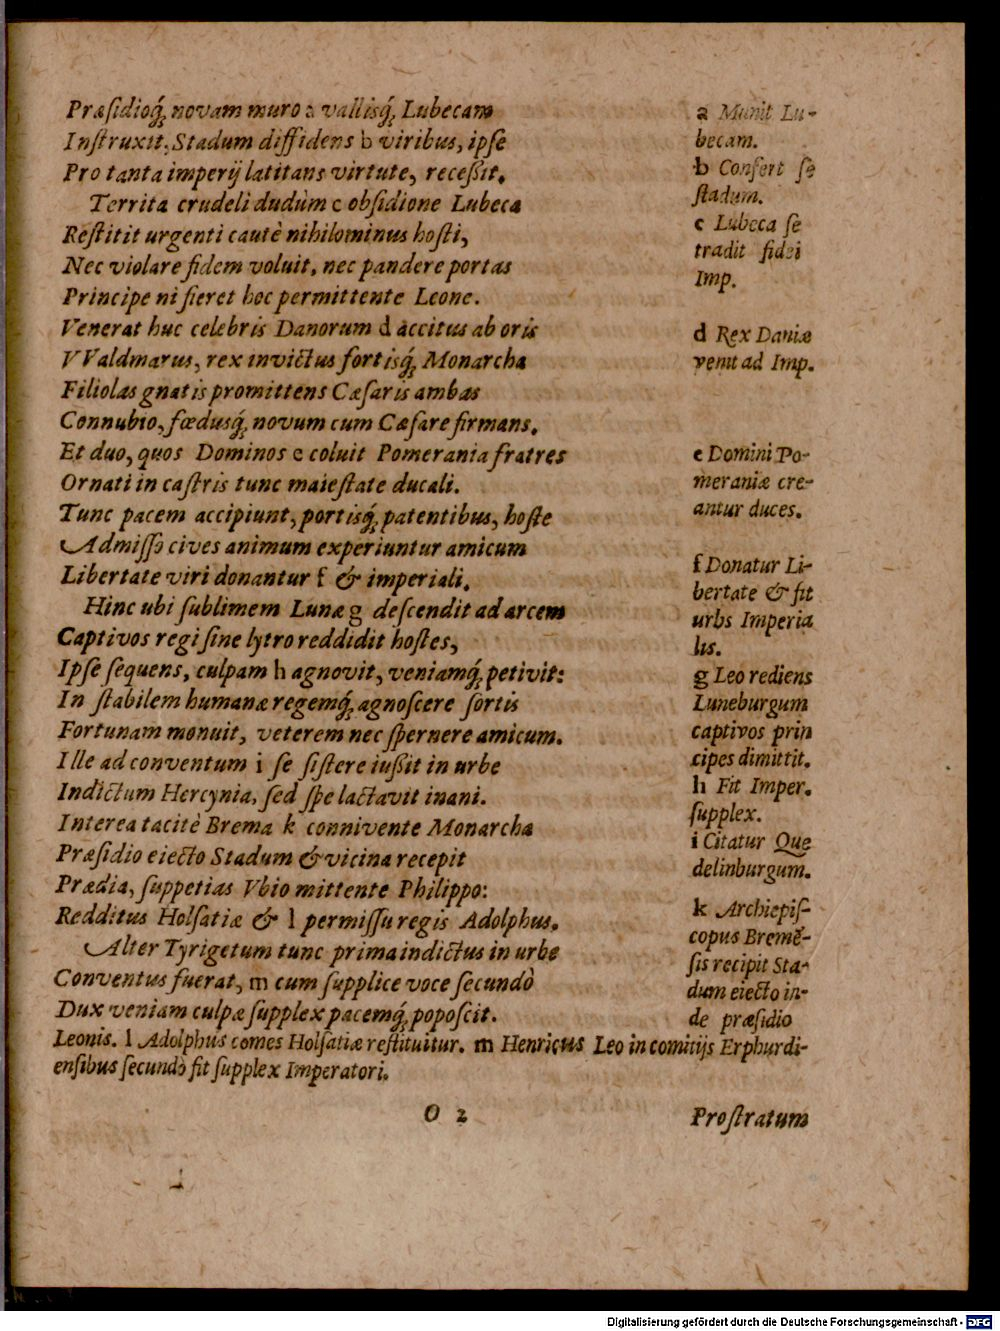 Præsidioq́; novam muro a vallisq́; Lubecam
Instruxit; Stadum diffidens b viribus, ipse
Pro tanta imperij latitans virtute, receßit.
Territa crudeli dudùm c obsidione Lubeca
Restitit urgenti cautè nihilominus hosti,
Nec violare fidem voluit, nec pandere portas
Principe ni fieret hoc permittente Leone.
Venerat huc celebris Danorum d accitus ab oris
VValdmarus, rex invictus fortisq́; Monarcha
Filiolas gnatis promittens Cæsaris ambas
Connubio, fœdusq́; novum cum Cæsare firmans.
Et duo, quos Dominos e coluit Pomerania fratres
Ornati in castris tunc maiestate ducali.
Tunc pacem accipiunt, portisq́; patentibus, hoste
Admisso cives animum experiuntur amicum
Libertate viri donantur f & imperiali.
Hinc ubi sublimem Lunæ g descendit ad arcem
Captivos regi sine lytro reddidit hostes,
Ipse sequens, culpam h agnovit, veniamq́; petivit:
In stabilem humanæ regemq́; agnoscere sortis
Fortunam monuit, veterem nec spernere amicum.
Ille ad conventum i se sistere iußit in urbe
Indictum Hercynia, sed spe lactavit inani.
Interea tacitè Brema k connivente Monarcha
Præsidio eiecto Stadum & vicina recepit
Prædia, suppetias Vbio mittente Philippo:
Redditus Holsatiæ & l permissu regis Adolphus.
Alter Tyrigetum tunc prima indictus in urbe
Conventus fuerat, m cum supplice voce secundò
Dux veniam culpæ supplex pacemq́; poposcit.
a Munit Lu-
becam.
b Confert se
stadum.
c Lubeca se
tradit fidei
Imp.
d Rex Daniæ
venit ad Imp.
e Domini Po-
meraniæ cre-
antur duces.
f Donatur Li-
bertate & fit
urbs Imperia
lis.
g Leo rediens
Luneburgum
captivos prin
cipes dimittit.
h Fit Imper.
supplex.
i Citatur Que
delinburgum.
k Archiepis-
copus Bremẽ-
sis recipit Sta-
dum eiecto in-
de præsidio
Leonis. l Adolphus comes Holsatiæ restituitur. m Henricus Leo in comitijs Erphurdi-
ensibus secundò fit supplex Imperatori.
O 2
Prostratum
Digitalisierung gefördert durch die Deutsche Forschungsgemeinschaft - DFG